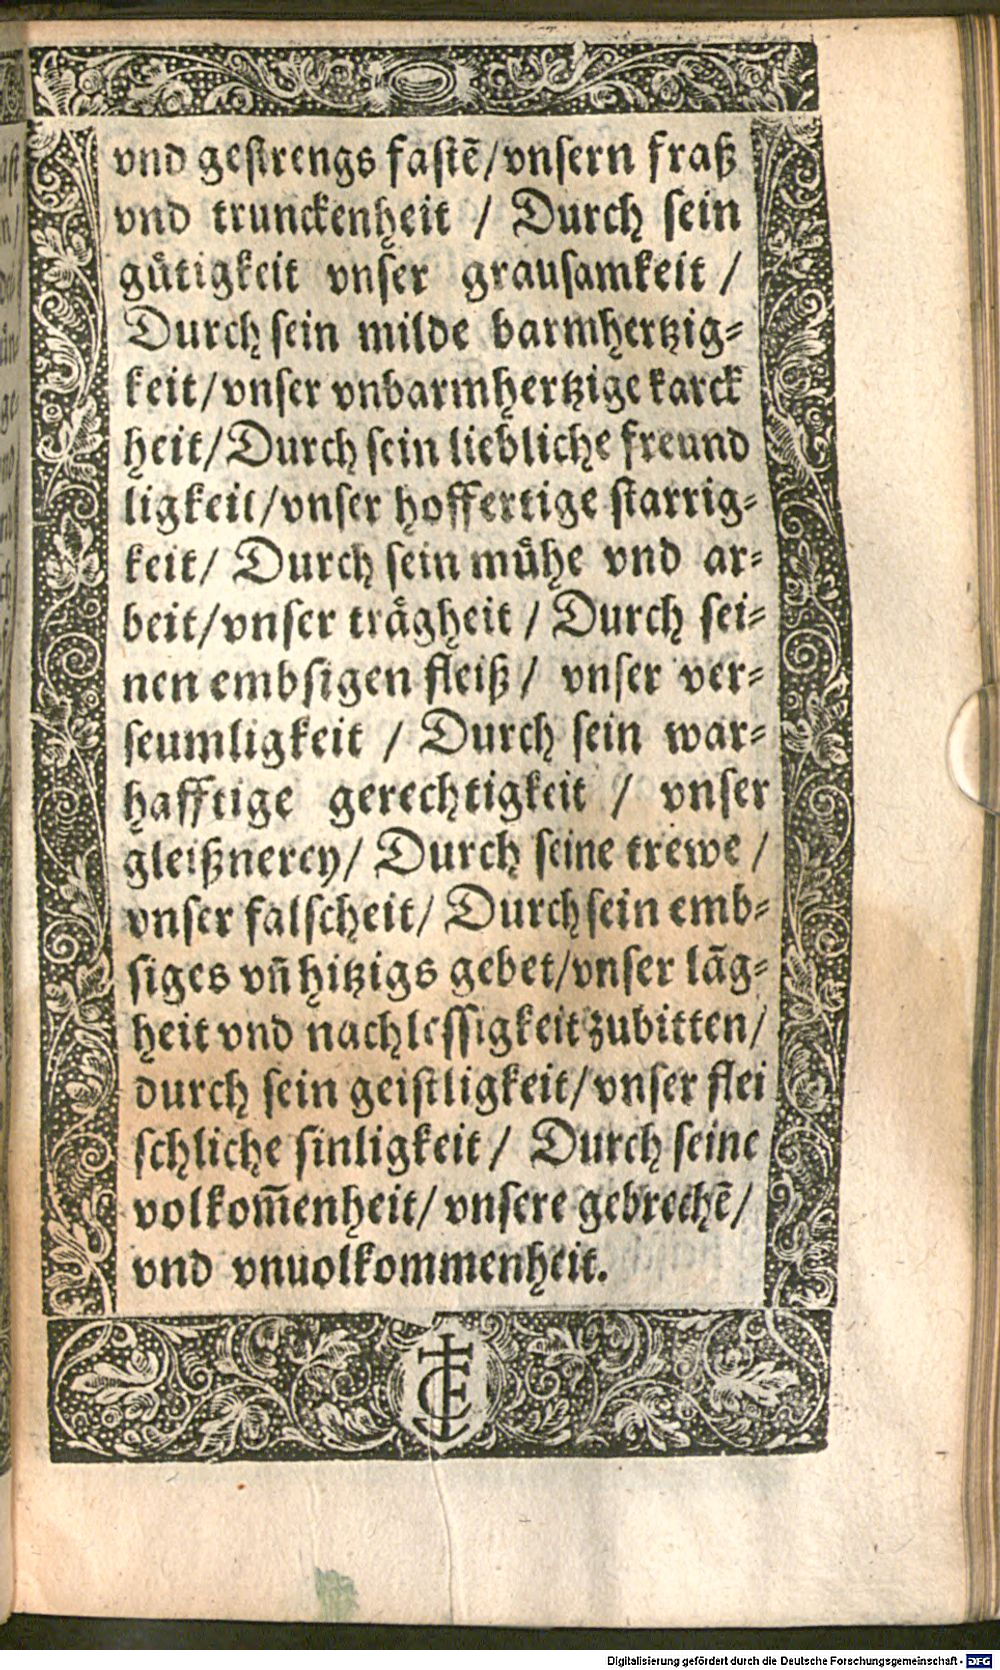 vnd gestrengs fastē/vnsern fraß
vnd trunckenheit / Durch sein
gůtigkeit vnser grausamkeit /
Durch sein milde barmhertzig⸗
keit/vnser vnbarmhertzige karck
heit/Durch sein liebliche freund
ligkeit/vnser hoffertige starrig⸗
keit/ Durch sein můhe vnd ar⸗
beit/vnser trågheit / Durch sei⸗
nen embsigen fleiß / vnser ver⸗
seumligkeit / Durch sein war⸗
hafftige gerechtigkeit / vnser
gleißnerey/ Durch seine trewe /
vnser falscheit/ Durch sein emb⸗
siges vñ hitzigs gebet/vnser lāg⸗
heit vnd nachlessigkeit zubitten/
durch sein geistligkeit/vnser flei
schliche sinligkeit / Durch seine
volkom̄enheit/ vnsere gebrechē/
vnd vnuolkommenheit.
Digitalisierung gefördert durch die Deutsche Forschungsgemeinschaft - DFG